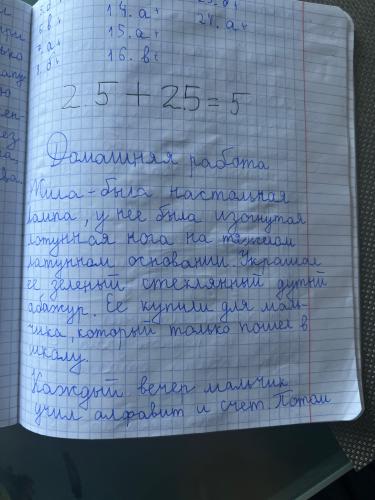 6. в+
7. а+
14. а+
15. а+
16. в+
24. а+
2.5 + 2.5 = 5
Домашняя работа
Жила-была настольная
лампа, у нее была изогнутая
латунная нога на тяжелом
латунном основании. Украшал
ее зеленый стеклянный дутый
абажур. Ее купили для маль-
чика, который только пошел в
школу.
Каждый вечер мальчик
учил алфавит и счет. Потом